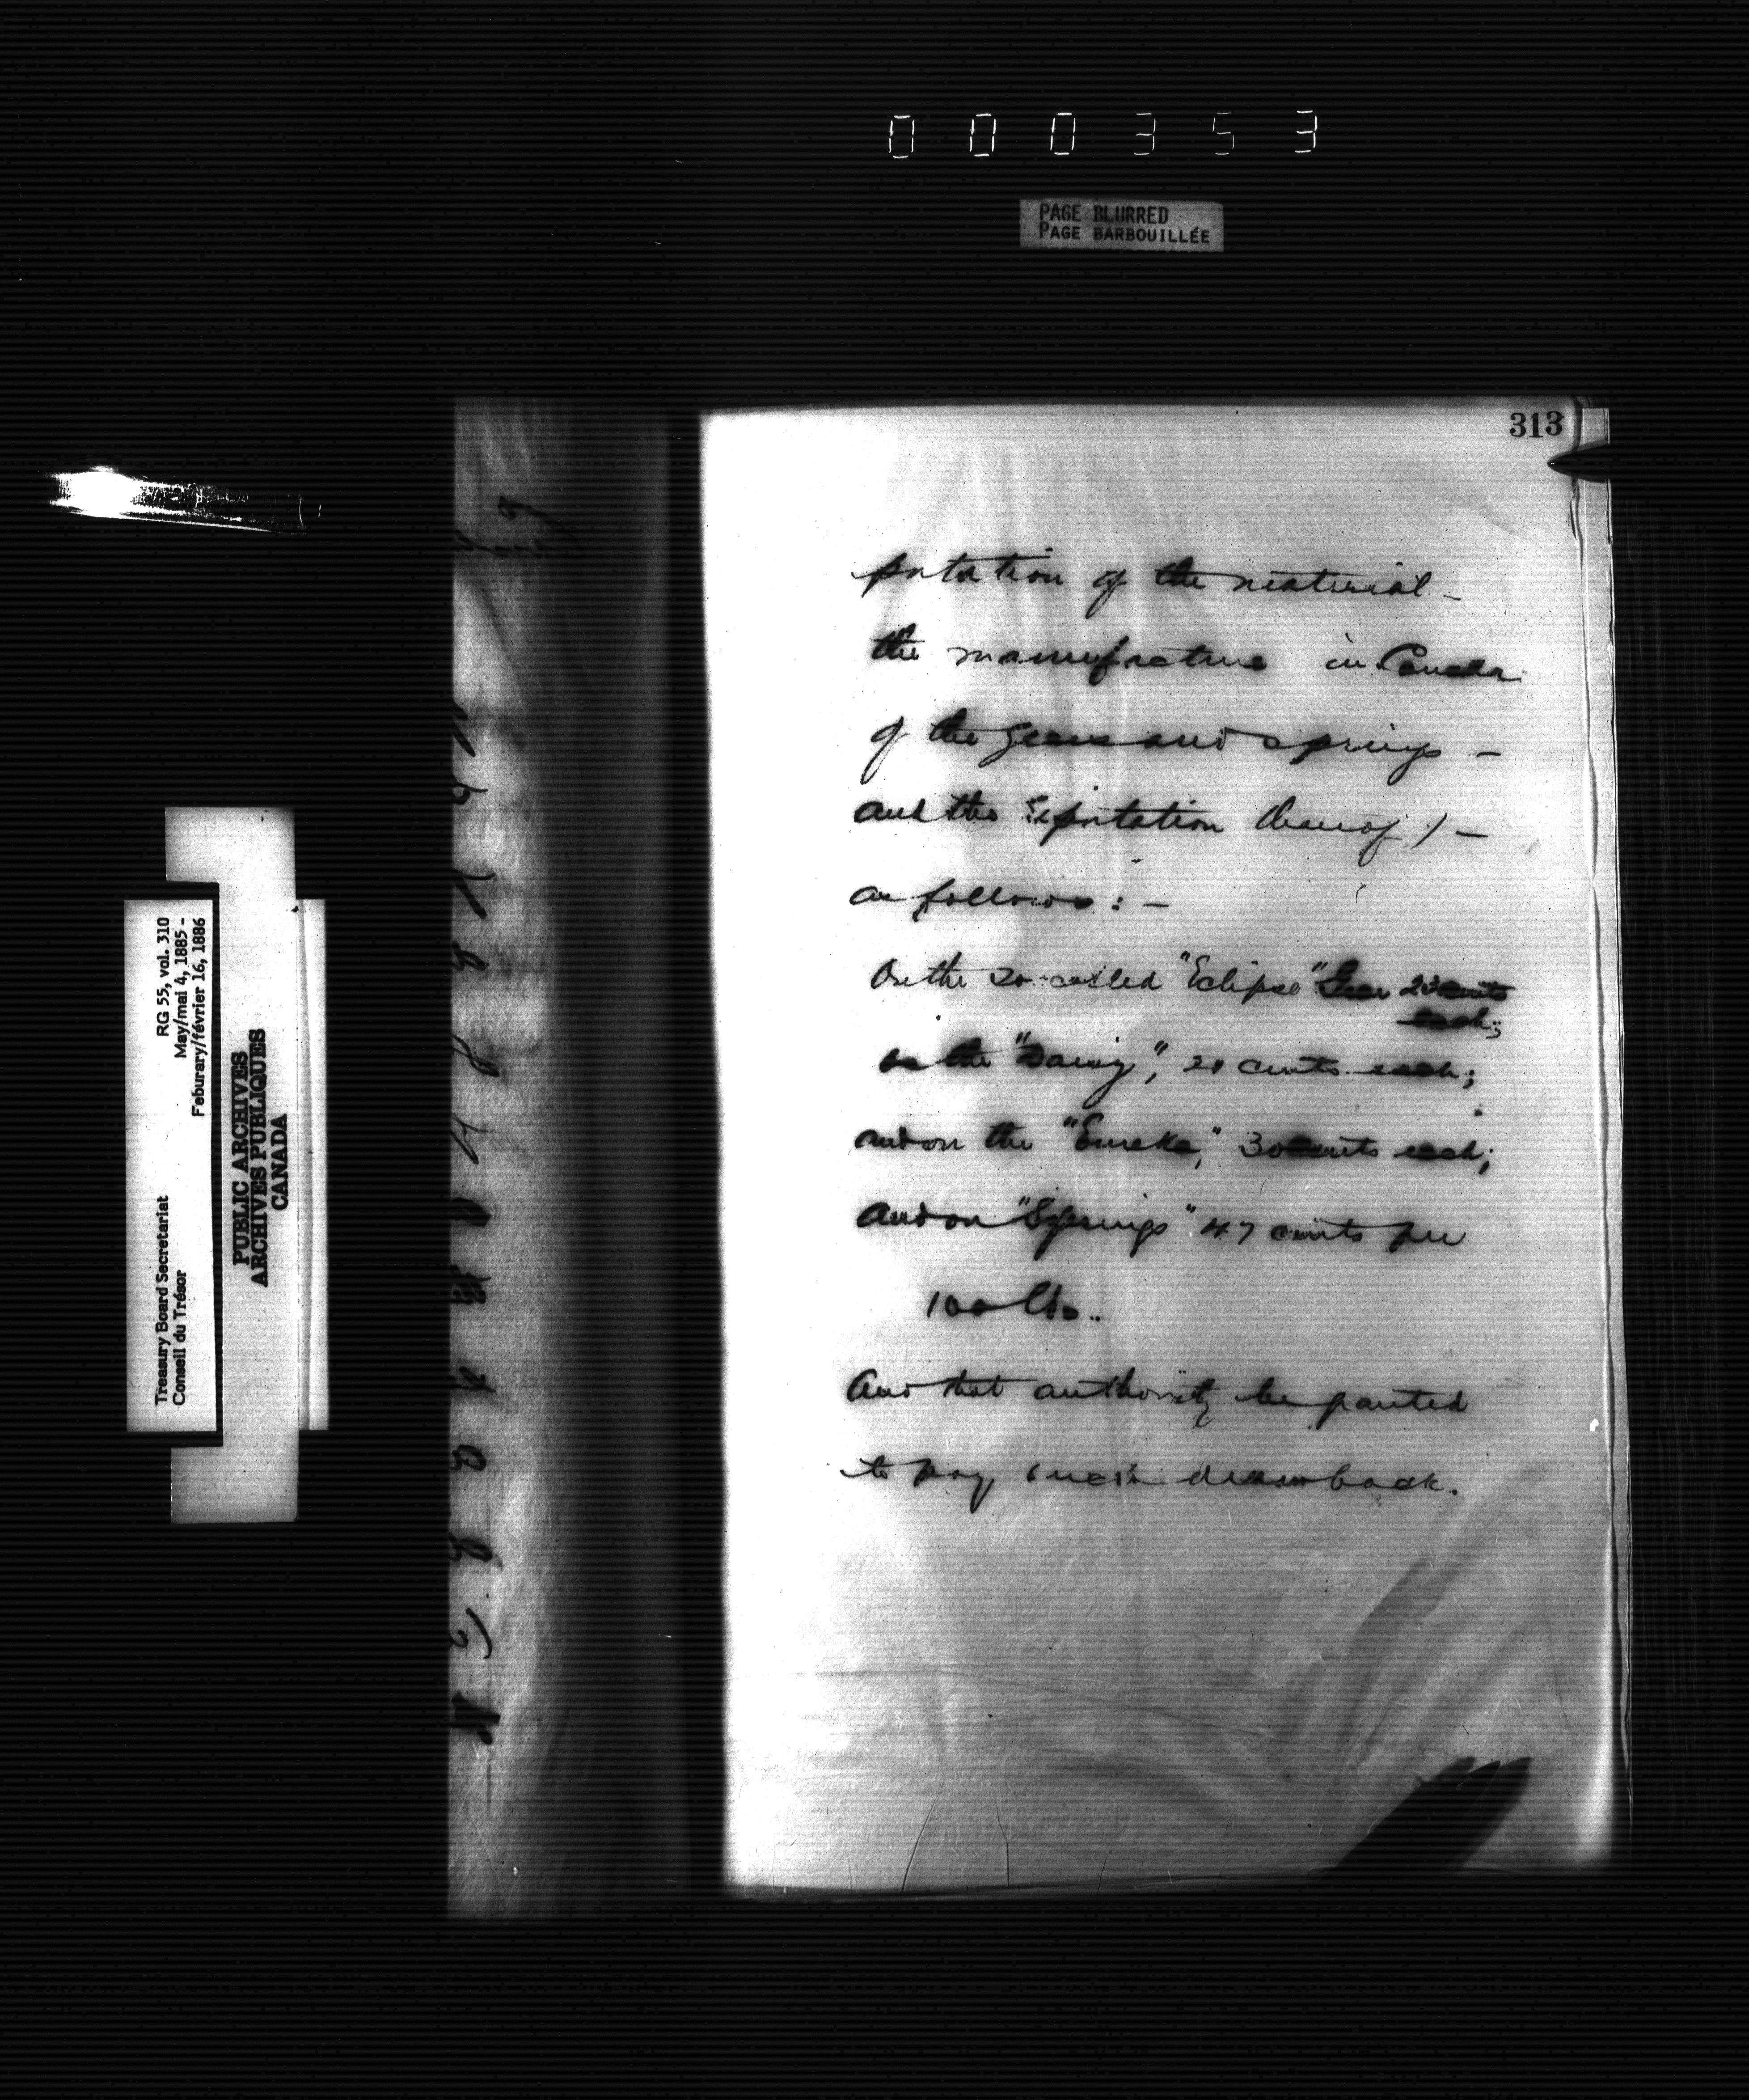 000353
PAGE BLURRED
PAGE BARBOUILLÉE
313
portation of the material –
the manufacture in Canada
of the Gears and Springs –
and the Exportation thereof) –
as follows: –
On the so-called "Eclipse" Gear cents
each;
on the "Daisy", 20 cents each;
and on the "Eureka", 30 cents each;
and on "Springs" 47 cents per
100 lbs.
And that authority be granted
to pay such drawback.
RG 55, vol. 310
May/mai 4, 1885 -
Feburary/février 16, 1886
Treasury Board Secretariat
Conseil du Trésor
PUBLIC ARCHIVES
ARCHIVES PUBLIQUES
CANADA